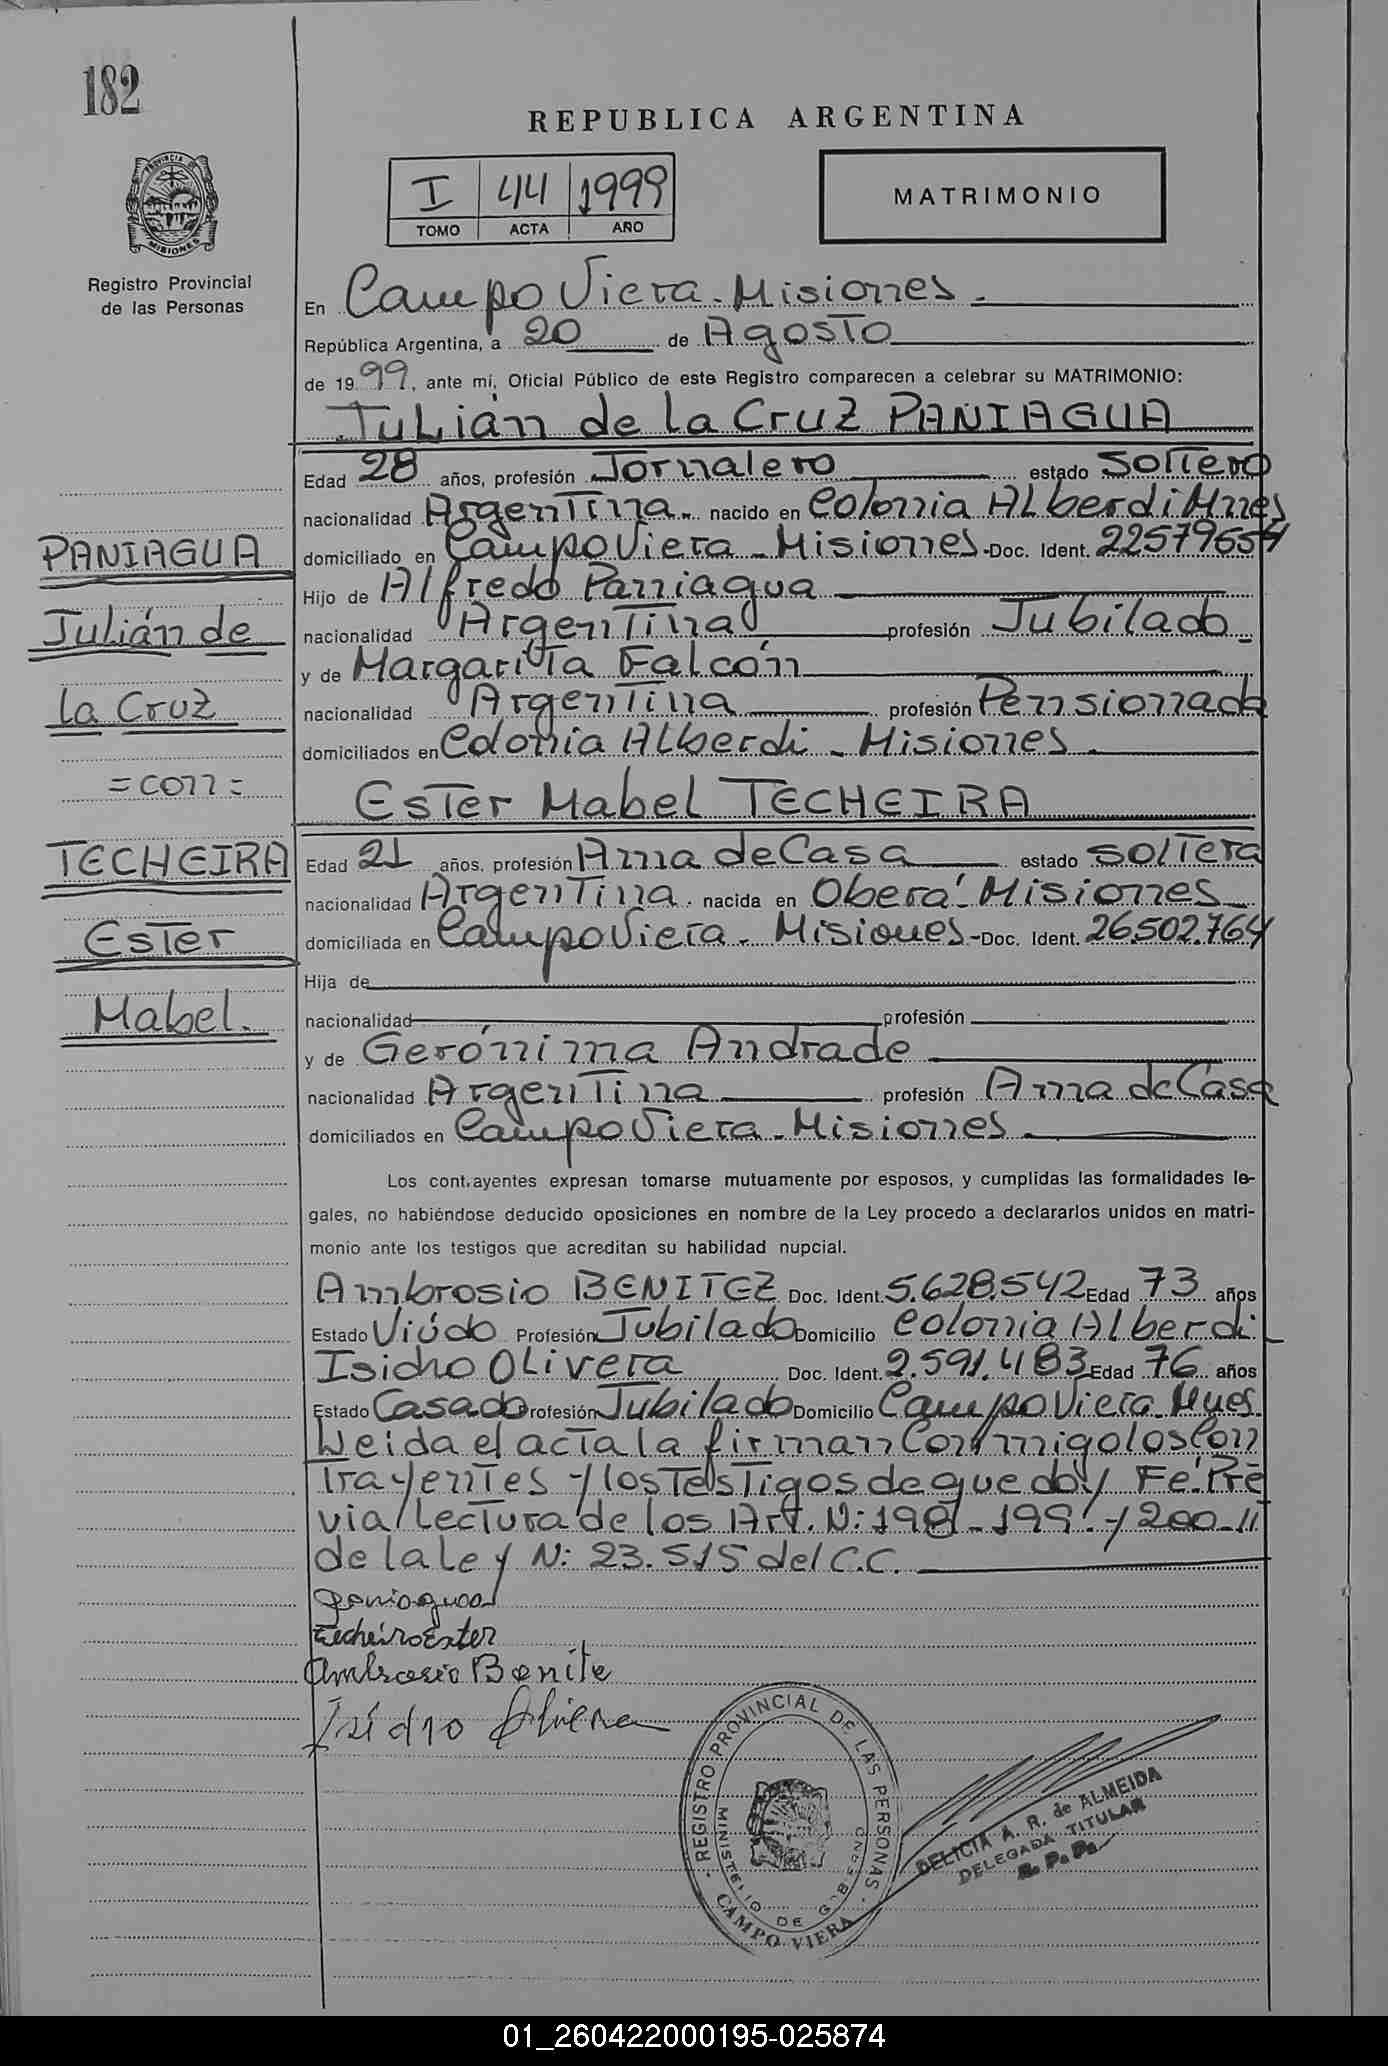 182
REPUBLICA ARGENTINA
PROVINCIA DE MISIONES
I 44 1999
TOMO ACTA AÑO
MATRIMONIO
Registro Provincial
de las Personas
En Campo Viera - Misiones -
República Argentina, a 20 de Agosto
de 1999, ante mí, Oficial Público de este Registro comparecen a celebrar su MATRIMONIO:
Julián de la Cruz PANIAGUA
Edad 28 años, profesión Jornalero estado Soltero
nacionalidad Argentina. nacido en Colonia Alberdi Mnes
domiciliado en Campo Viera - Misiones - Doc. Ident. 22579654
Hijo de Alfredo Paniagua
nacionalidad Argentina profesión Jubilado
y de Margarita Falcón
nacionalidad Argentina profesión Pensionada
domiciliados en Colonia Alberdi - Misiones
PANIAGUA
Julián de
la Cruz
= con =
TECHEIRA
Ester
Mabel.
Ester Mabel TECHEIRA
Edad 21 años, profesión Ama de Casa estado soltera
nacionalidad Argentina. nacida en Oberá - Misiones
domiciliada en Campo Viera - Misiones - Doc. Ident. 26.502.764
Hija de
nacionalidad profesión
y de Gerónima Andrade
nacionalidad Argentina profesión Ama de Casa
domiciliados en Campo Viera - Misiones
Los contrayentes expresan tomarse mutuamente por esposos, y cumplidas las formalidades le-
gales, no habiéndose deducido oposiciones en nombre de la Ley procedo a declararlos unidos en matri-
monio ante los testigos que acreditan su habilidad nupcial.
Ambrosio BENITEZ Doc. Ident. 5.628.542 Edad 73 años
Estado Viúdo Profesión Jubilado Domicilio Colonia Alberdi
Isidro Olivera Doc. Ident. 2.591.483 Edad 76 años
Estado Casado Profesión Jubilado Domicilio Campo Viera Mnes.
Leida el acta la firman conmigo los con
trayentes y los testigos de que doy Fé. Pre
via lectura de los Art. N: 198 - 199 - y 200 -
de la ley N: 23.515 del C.C.
Paniagua
Techeira Ester
Ambrosio Benite
Isidro Olivera
REGISTRO PROVINCIAL DE LAS PERSONAS
MINISTERIO DE GOBIERNO
CAMPO VIERA
DELICIA A. R. de ALMEIDA
DELEGADA TITULAR
R. P. P.
01_260422000195-025874